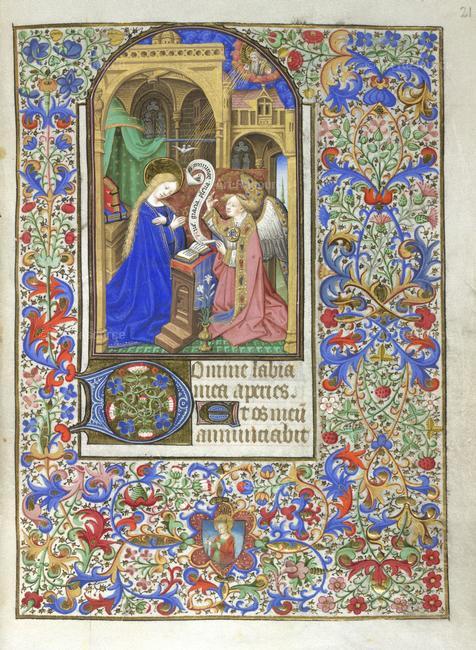 21
aue gratia plena
Domine labia
mea aperies.
Et os meū
annunciabit